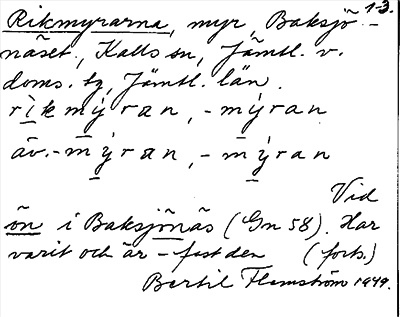 1-3.
Rikmyrarna, myr, Baksjö-
näset, Kalls sn, Jämtl. v.
doms. tg, Jämtl. län.
rìkmýran, -mýran
äv. -mýran, -mýran
Vid
ön i Baksjönäs (Gn 58). Har
varit och är - fast den (forts.)
Bertil Flemström 1949.